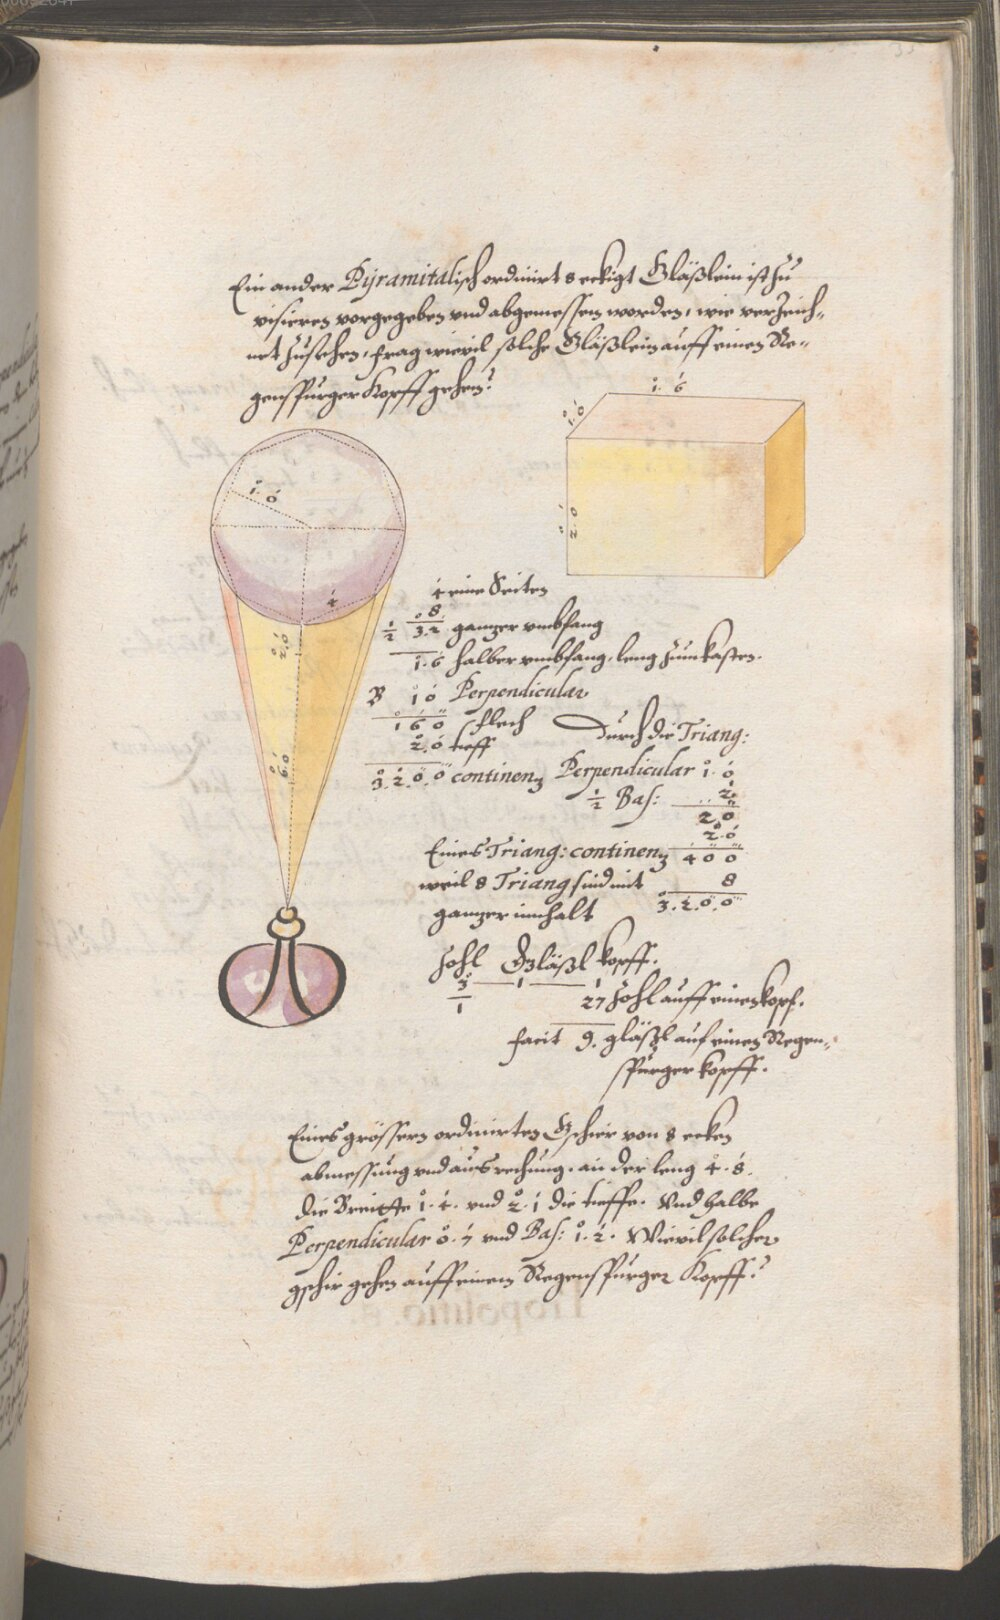 Ein ander Pÿramitalisch ordinirt 8 eckigt Gläßlein ist zu
visieren vorgegeben und abgemessen worden, wie verzeich-
net zusehen, frag wievil solche Gläßlein auff einen Re-
genspurger Kopff gehen?
1. 6
1. 0
2. 0
1. 0
4
2. 0
6. 0
4 eine Seiten
8
1/2 3. 2 ganzer umbfang
1. 6 halber umbfang, leng zum kasten.
1 0 Perpendicular
1 6 0 flech
2. 0 tieff
3. 2. 0. 0 continenz
Durch die Triang:
Perpendicular 1. 0
1/2 Bas: 2
2 0
2. 0
Eines Triang: continenz 4 0 0
weil 8 Triang sind mit 8
ganzer innhalt 3. 2. 0. 0
Zohl Gläßl kopff.
3 — 1 — 1
1 27 Zohl auff einen kopf.
facit 9. gläßl auf einen Regen-
spurger kopff.
Eines grössern ordinirten Gschir von 8 ecken
abmessung und ausrechung, an der leng 4. 8.
die Breitte 1. 4. und 2. 1 die tieffe. Und halbe
Perpendicular 0. 7 und Bas: 1. 2. Wievil solcher
gschir gehen auff einem Regenspurger Kopff?